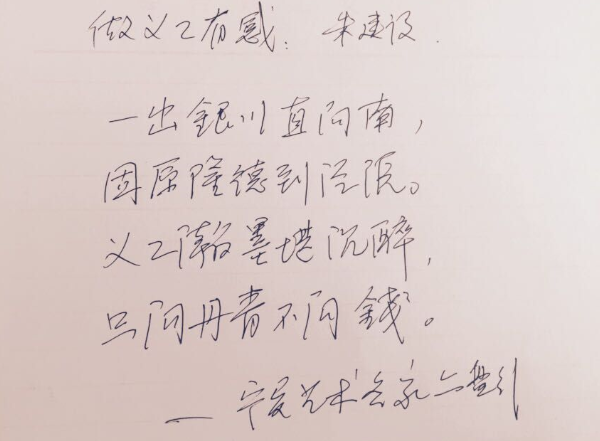 做义工有感. 朱建设.
一出銀川直向南,
固原隆德到泾源。
义工瀚墨堪沉醉,
只问丹青不问錢。
— 宁夏艺术名家六盘行